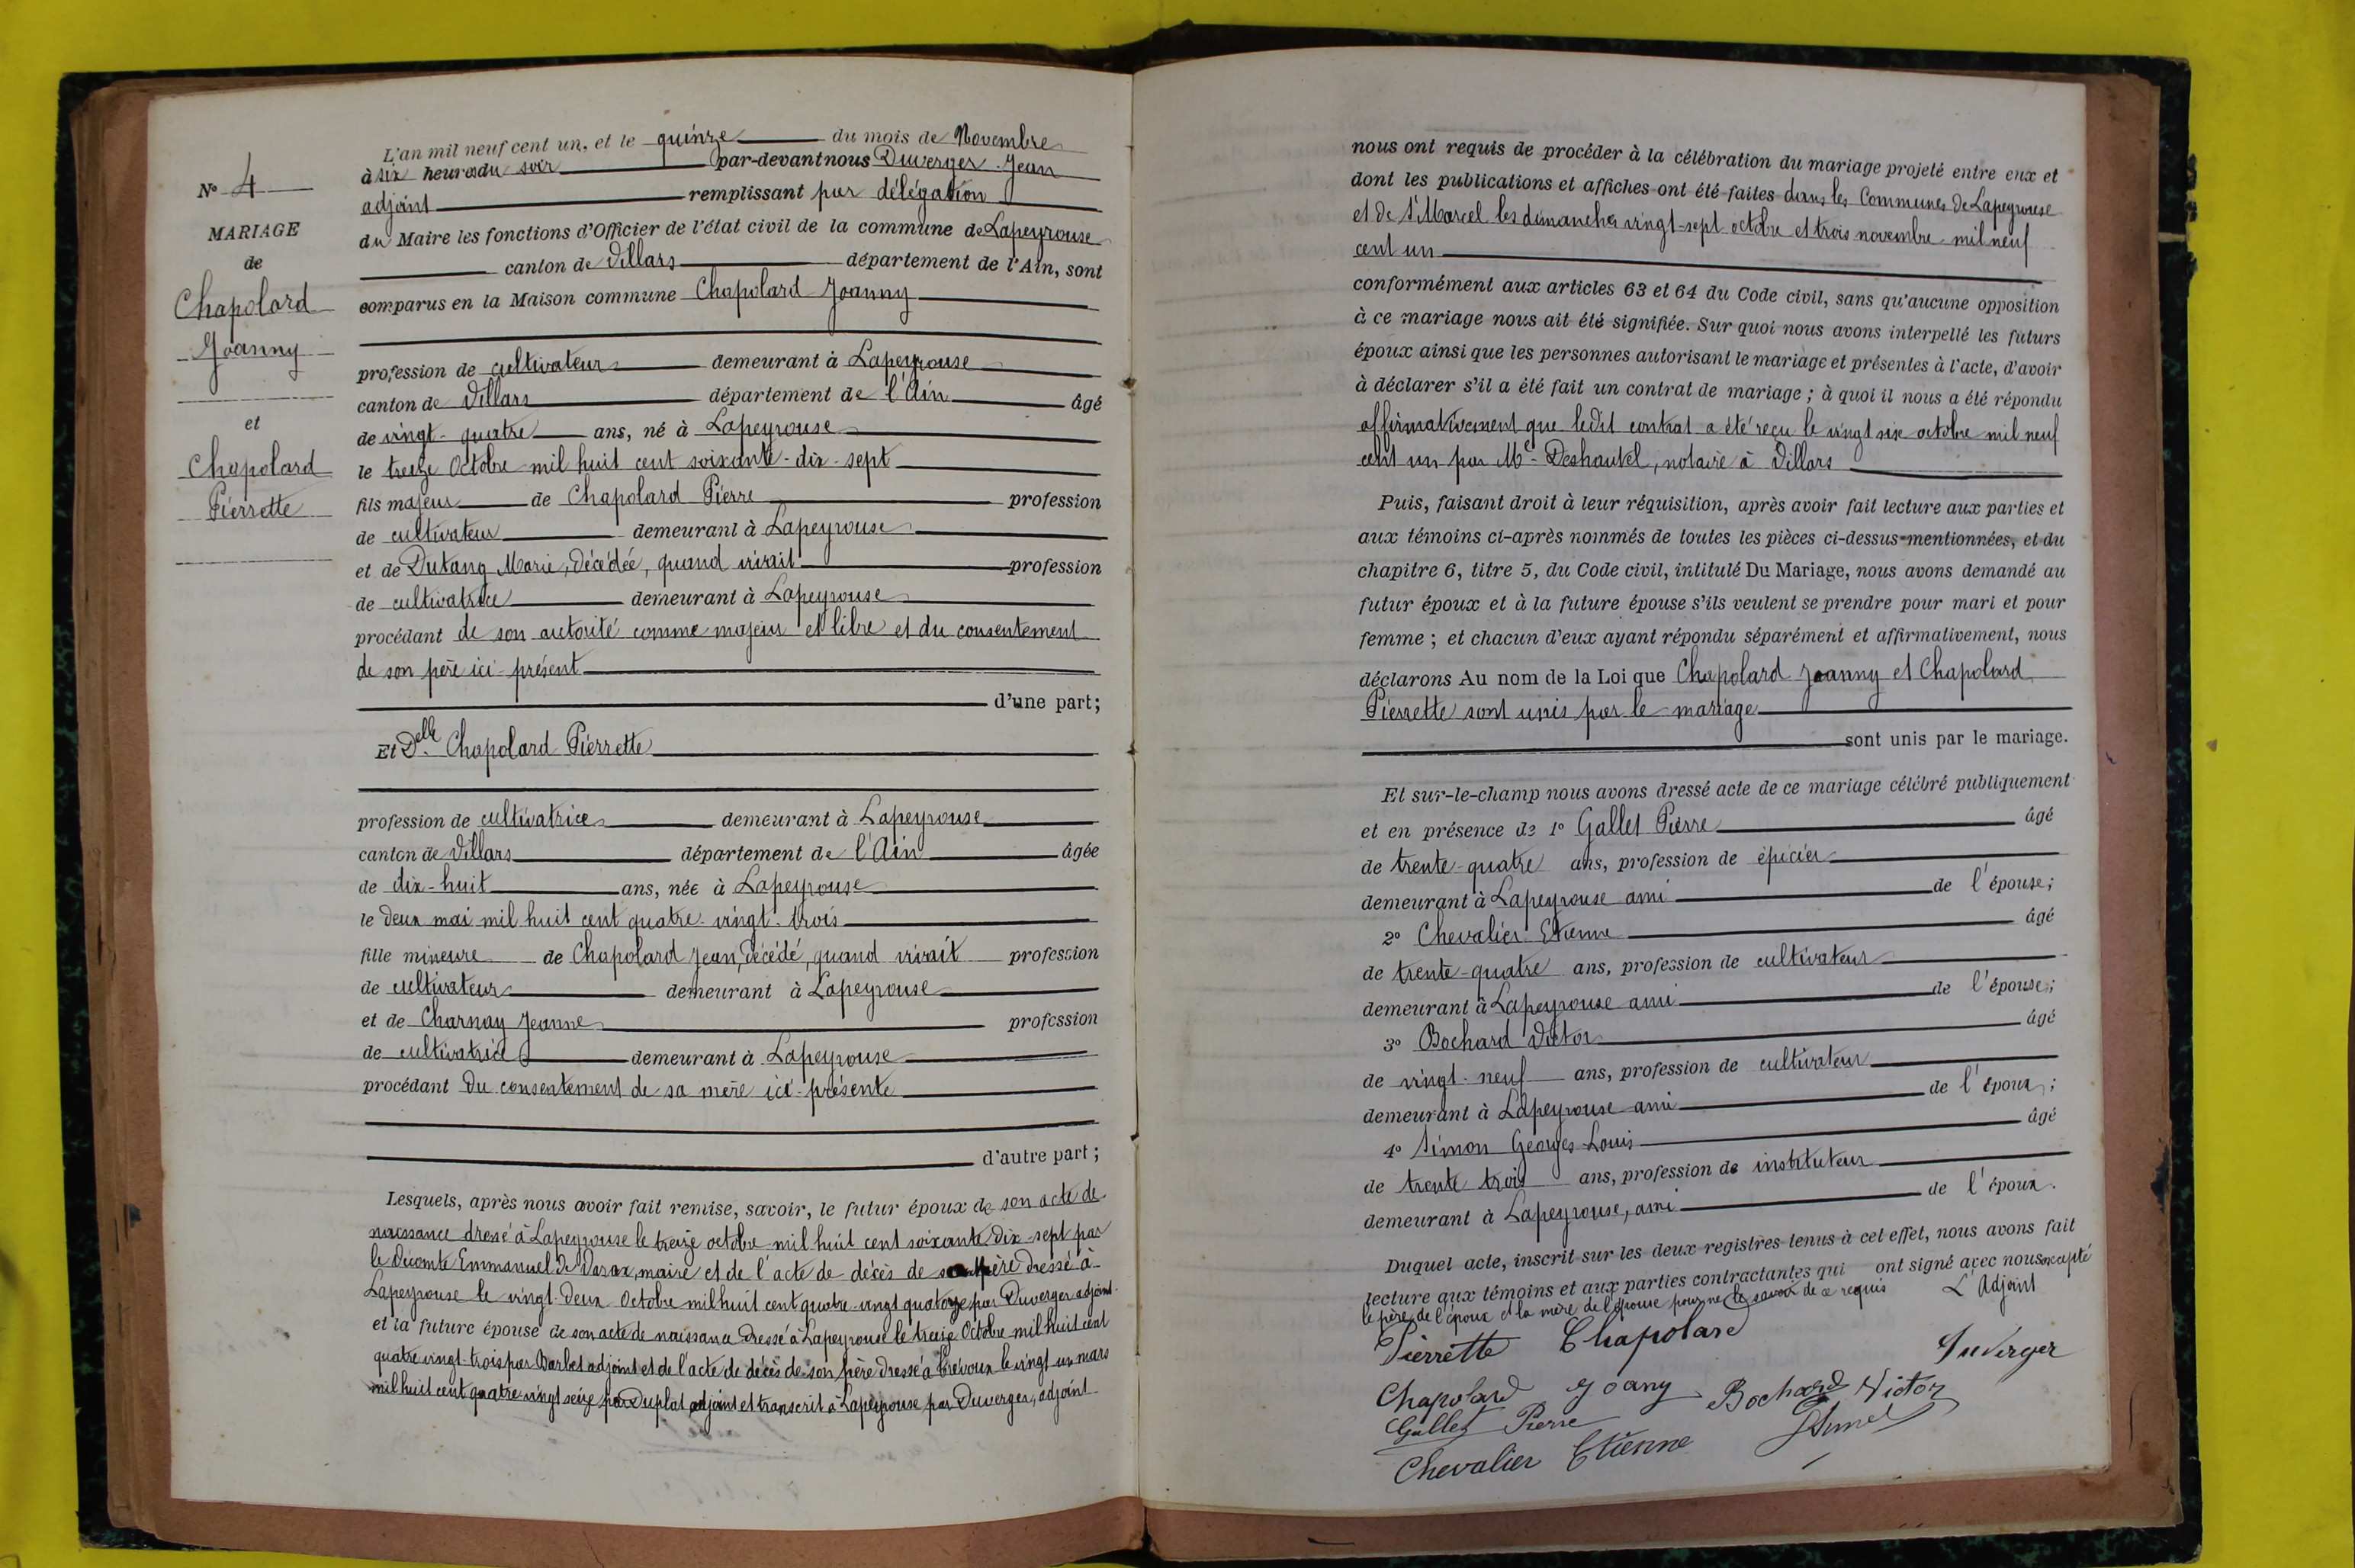 N° 4
MARIAGE
de
Chapolard
Joanny
et
Chapolard
Pierrette
L'an mil neuf cent un, et le quinze du mois de Novembre
à six heures du soir par-devant nous Duverger Jean
adjoint remplissant par délégation
du Maire les fonctions d'Officier de l'état civil de la commune de Lapeyrouse
canton de Villars département de l'Ain, sont
comparus en la Maison commune Chapolard Joanny
profession de cultivateur demeurant à Lapeyrouse
canton de Villars département de l'Ain âgé
de vingt-quatre ans, né à Lapeyrouse
le treize Octobre mil huit cent soixante-dix-sept
fils majeur de Chapolard Pierre profession
de cultivateur demeurant à Lapeyrouse
et de Dutang Marie, décédée, quand vivait profession
de cultivatrice demeurant à Lapeyrouse
procédant de son autorité comme majeur et libre et du consentement
de son père ici présent
d'une part;
Et Delle Chapolard Pierrette
profession de cultivatrice demeurant à Lapeyrouse
canton de Villars département de l'Ain âgée
de dix-huit ans, née à Lapeyrouse
le deux mai mil huit cent quatre-vingt-trois
fille mineure de Chapolard Jean, décédé, quand vivait profession
de cultivateur demeurant à Lapeyrouse
et de Charnay Jeanne profession
de cultivatrice demeurant à Lapeyrouse
procédant du consentement de sa mère ici présente
d'autre part;
Lesquels, après nous avoir fait remise, savoir, le futur époux de son acte de
naissance dressé à Lapeyrouse le treize octobre mil huit cent soixante-dix-sept par
le Vicomte Emmanuel de Varax, maire et de l'acte de décès de sa mère dressé à
Lapeyrouse le vingt-deux Octobre mil huit cent quatre-vingt quatorze par Duverger adjoint.
et la future épouse de son acte de naissance dressé à Lapeyrouse le treize Octobre mil huit cent
quatre vingt-trois par Barbet adjoint et de l'acte de décès de son père dressé à Trévoux le vingt un mars
mil huit cent quatre vingt seize par Duplat adjoint et transcrit à Lapeyrouse par Duverger, adjoint
nous ont requis de procéder à la célébration du mariage projeté entre eux et
dont les publications et affiches ont été faites dans les Communes de Lapeyrouse
et de St Marcel les dimanches vingt-sept octobre et trois novembre mil neuf
cent un
conformément aux articles 63 et 64 du Code civil, sans qu'aucune opposition
à ce mariage nous ait été signifiée. Sur quoi nous avons interpellé les futurs
époux ainsi que les personnes autorisant le mariage et présentes à l'acte, d'avoir
à déclarer s'il a été fait un contrat de mariage; à quoi il nous a été répondu
affirmativement que ledit contrat a été reçu le vingt six octobre mil neuf
cent un par Me Deshautel, notaire à Villars
Puis, faisant droit à leur réquisition, après avoir fait lecture aux parties et
aux témoins ci-après nommés de toutes les pièces ci-dessus mentionnées, et du
chapitre 6, titre 5, du Code civil, intitulé Du Mariage, nous avons demandé au
futur époux et à la future épouse s'ils veulent se prendre pour mari et pour
femme; et chacun d'eux ayant répondu séparément et affirmativement, nous
déclarons Au nom de la Loi que Chapolard Joanny et Chapolard
Pierrette sont unis par le mariage
sont unis par le mariage.
Et sur-le-champ nous avons dressé acte de ce mariage célébré publiquement
et en présence de 1° Gallet Pierre âgé
de trente-quatre ans, profession de épicier
demeurant à Lapeyrouse ami de l'épouse;
2° Chevalier Etienne âgé
de trente-quatre ans, profession de cultivateur
demeurant à Lapeyrouse ami de l'épouse;
3° Bochard Victor âgé
de vingt-neuf ans, profession de cultivateur
demeurant à Lapeyrouse ami de l'époux;
4° Simon Georges Louis âgé
de trente trois ans, profession de instituteur
demeurant à Lapeyrouse, ami de l'époux.
Duquel acte, inscrit sur les deux registres tenus à cet effet, nous avons fait
lecture aux témoins et aux parties contractantes qui ont signé avec nous excepté
le père de l'époux et la mère de l'épouse pour ne le savoir de ce requis L'Adjoint
Pierrette Chapolard
Duverger
Chapolard Joany Bochard Victor
Gallet Pierre
Chevalier Etienne